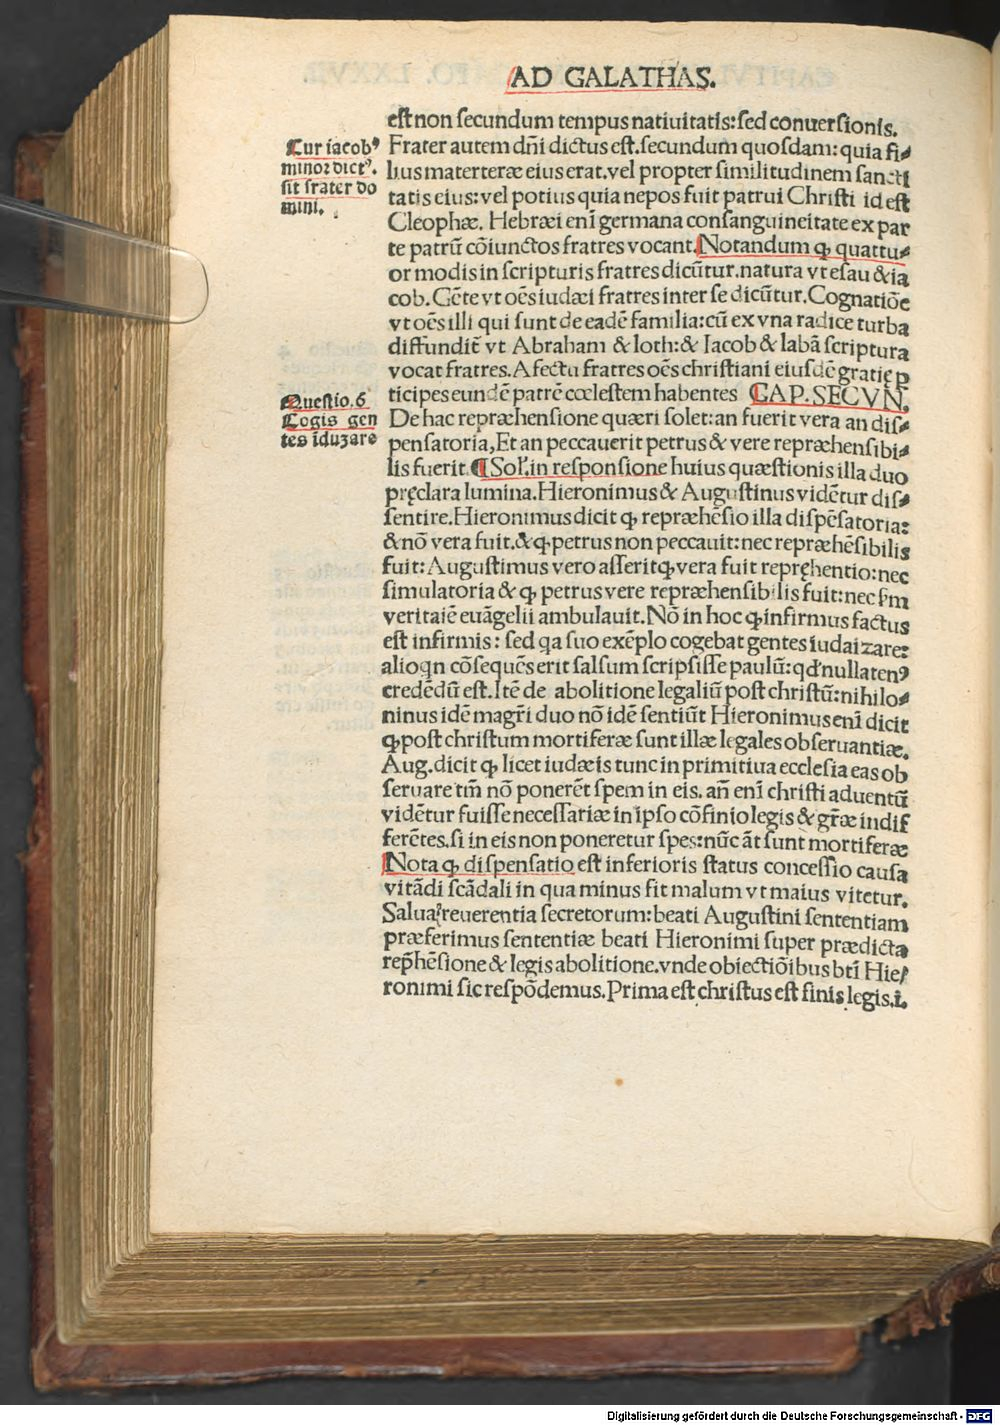 AD GALATHAS.
est non secundum tempus natiuitatis: sed conuersionis.
Frater autem dñi dictus est. secundum quosdam: quia fi⸗
lius materteræ eius erat. vel propter similitudinem sancti
tatis eius: vel potius quia nepos fuit patrui Christi id est
Cleophæ. Hebræi eni germana consanguineitate ex par
te patrũ cõiunctos fratres vocant. Notandum ꝙ quattu⸗
or modis in scripturis fratres dicũtur. natura vt esau & ia
cob. Gẽte vt oẽs iudæi fratres inter se dicũtur. Cognatiõe
vt oẽs illi qui sunt de eadẽ familia: cũ ex vna radice turba
diffundit̃ vt Abraham & loth: & Iacob & labã scriptura
vocat fratres. Affectu fratres oẽs christiani eiusdẽ gratię ꝑ
ticipes eundẽ patrẽ cœlestem habentes CAP. SECVN.
De hac repræhensione quæri solet: an fuerit vera an dis⸗
pensatoria, Et an peccauerit petrus & vere repræhensibi⸗
lis fuerit. ¶ Sol̃. in responsione huius quæstionis illa duo
pręclara lumina. Hieronimus & Augustinus vidẽtur dis⸗
sentire. Hieronimus dicit ꝙ repræhẽsio illa dispẽsatoria:
& nõ vera fuit. & ꝙ petrus non peccauit: nec repræhẽsibilis
fuit: Augustimus vero asserit ꝙ vera fuit repręhentio: nec
simulatoria & ꝙ petrus vere repræhensibilis fuit: nec s̃m
veritatẽ euãgelii ambulauit. Nõ in hoc ꝙ infirmus factus
est infirmis: sed qa suo exẽplo cogebat gentes iudaizare:
alioqn cõsequẽs erit falsum scripsisse paulũ: qđ nullatenꝰ
credẽdũ est. Itẽ de abolitione legaliũ post christũ: nihilo⸗
ninus idẽ magr̃i duo nõ idẽ sentiũt Hieronimus eni dicit
ꝙ post christum mortiferæ sunt illæ legales obseruantiæ.
Aug. dicit ꝙ licet iudæis tunc in primitiua ecclesia eas ob
seruare tm̃ nõ ponerẽt spem in eis. añ eni christi aduentũ
vidẽtur fuisse necessariæ in ipso cõfinio legis & gr̃æ indif
ferẽtes. si in eis non poneretur spes: nũc ãt sunt mortiferæ
Nota ꝙ dispensatio est inferioris status concessio causa
vitãdi scãdali in qua minus fit malum vt maius vitetur.
Salua reuerentia secretorum: beati Augustini sententiam
præferimus sententiæ beati Hieronimi super prædicta
rep̃hẽsione & legis abolitione. vnde obiectiõibus bti Hie/
ronimi sic respõdemus. Prima est christus est finis legis. i.
Cur iacobꝰ
minor dictꝰ.
sit frater do
mini.
Questio. 6
Cogis gen
tes iduzare
Digitalisierung gefördert durch die Deutsche Forschungsgemeinschaft - DFG